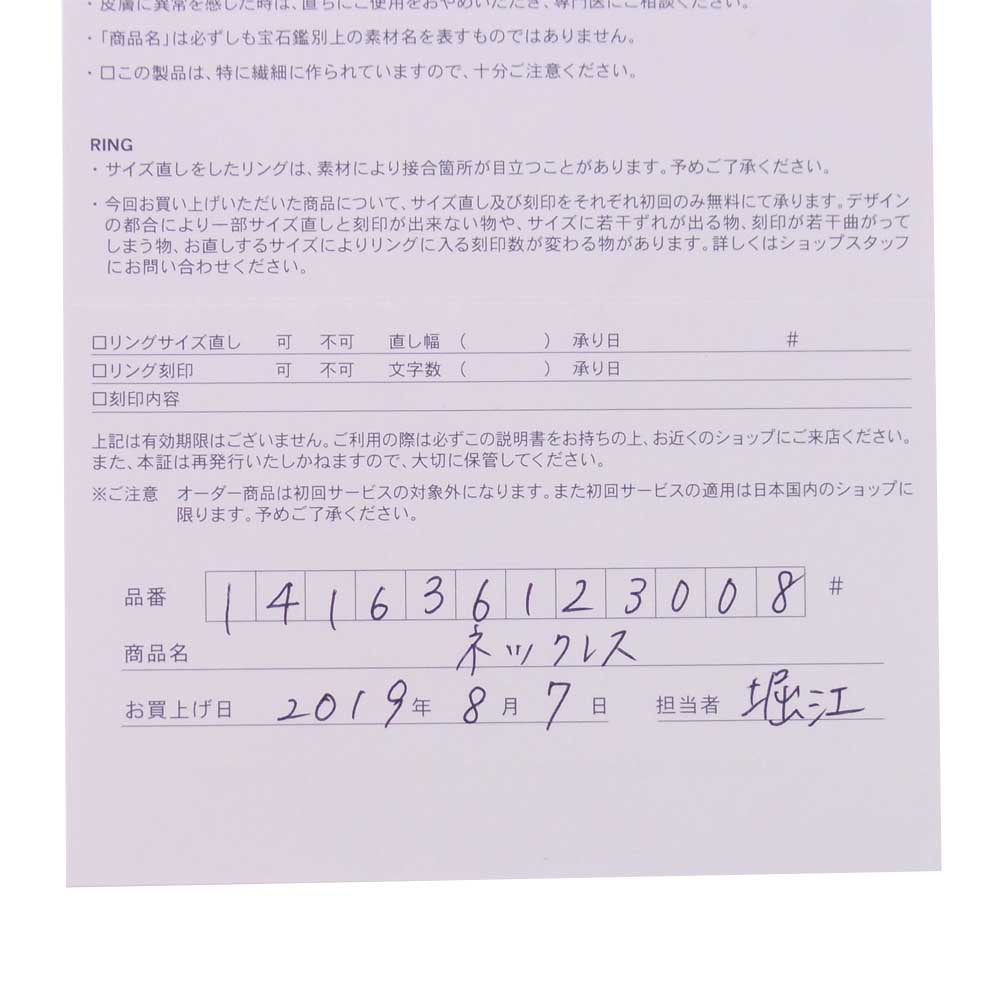 ・皮膚に異常を感じた時は、直ちにご使用をおやめいただき、専門医にご相談ください。
・「商品名」は必ずしも宝石鑑別上の素材名を表すものではありません。
・□この製品は、特に繊細に作られていますので、十分ご注意ください。
RING
・サイズ直しをしたリングは、素材により接合箇所が目立つことがあります。予めご了承ください。
・今回お買い上げいただいた商品について、サイズ直し及び刻印をそれぞれ初回のみ無料にて承ります。デザイン
の都合により一部サイズ直しと刻印が出来ない物や、サイズに若干ずれが出る物、刻印が若干曲がって
しまう物、お直しするサイズによりリングに入る刻印数が変わる物があります。詳しくはショップスタッフ
にお問い合わせください。
□リングサイズ直し 可 不可 直し幅 ( ) 承り日 #
□リング刻印 可 不可 文字数 ( ) 承り日
□刻印内容
上記は有効期限はございません。ご利用の際は必ずこの説明書をお持ちの上、お近くのショップにご来店ください。
また、本証は再発行いたしかねますので、大切に保管してください。
※ご注意 オーダー商品は初回サービスの対象外になります。また初回サービスの適用は日本国内のショップに
限ります。予めご了承ください。
品番 141636123008 #
商品名 ネックレス
お買上げ日 2019年 8月 7日 担当者 堀江